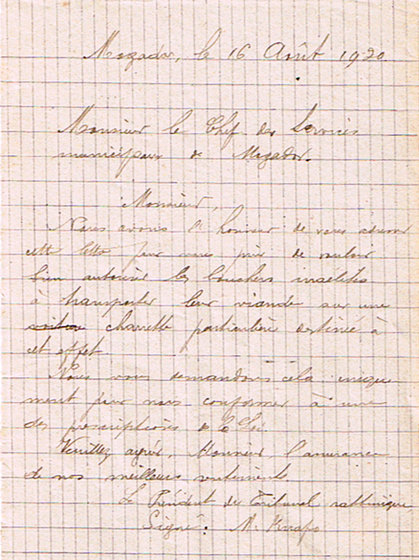 Mogador, le 16 Août 1920
Monsieur le Chef des Services
municipaux de Mogador.
Monsieur,
Nous avons l'honneur de vous adresser
cette lettre pour vous prier de vouloir
bien autoriser les bouchers israelites
à transporter leur viande sur une
voiture charrette particulière destinée à
cet effet.
Nous vous demandons cela unique
ment pour nous conformer à une
des prescriptions de la Loi.
Veuillez agréer, Monsieur l'assurance
de nos meilleurs sentiments
Le Président du Tribunal rabbinique
Signé: M. Knafo